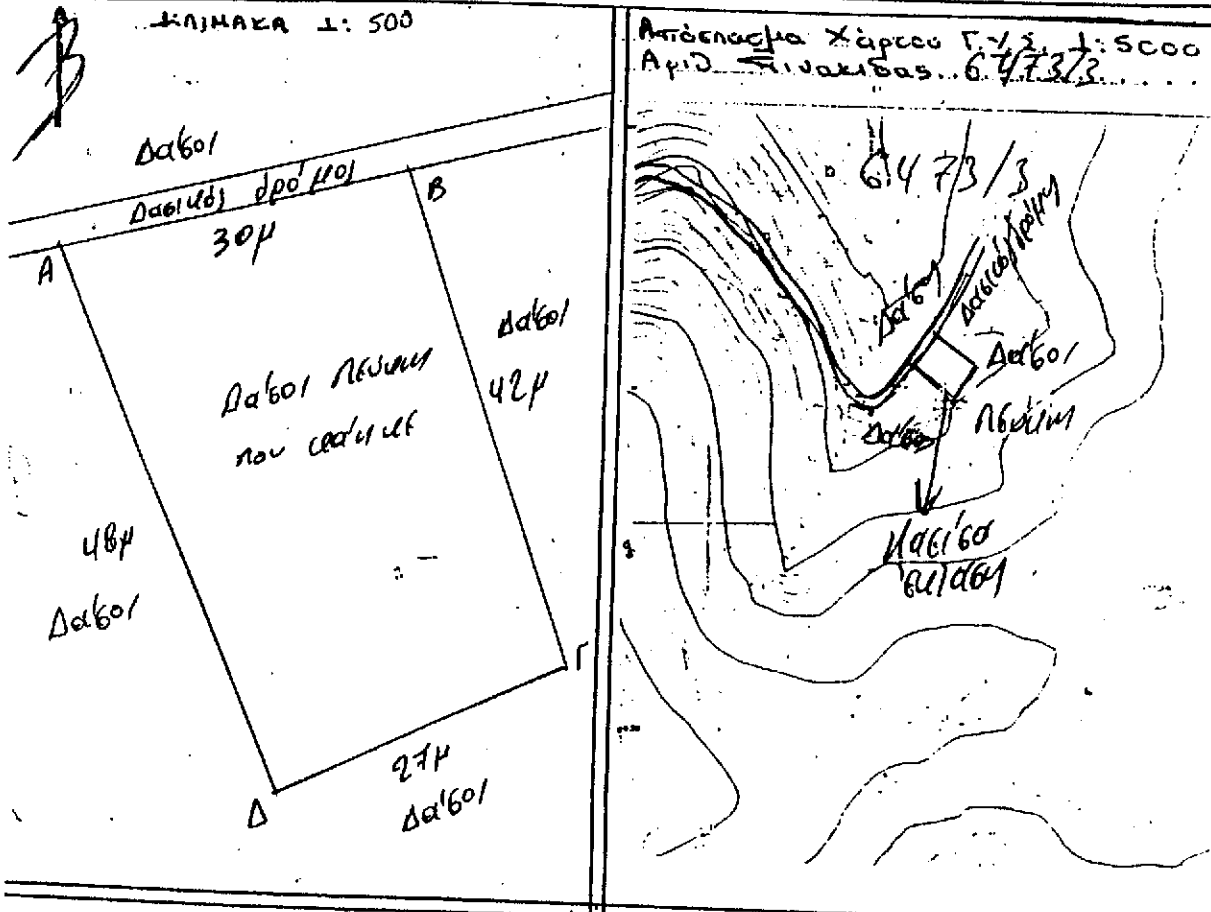 Β
ΚΛΙΜΑΚΑ 1:500
Δάσος
Δασικός δρόμος
Α
Β
30μ
Δάσος
42μ
Δάσος πεύκης
που κάηκε
48μ
Δάσος
Γ
Δ
27μ
Δάσος
Απόσπασμα Χάρτου Γ.Υ.Σ. 1:5000
Αριθ Πινακίδας..6473/3.....
6473/3
Δάσος
Δασικός δρόμος
Δάσος
Δάσος
πεύκης
καείσα
έκταση